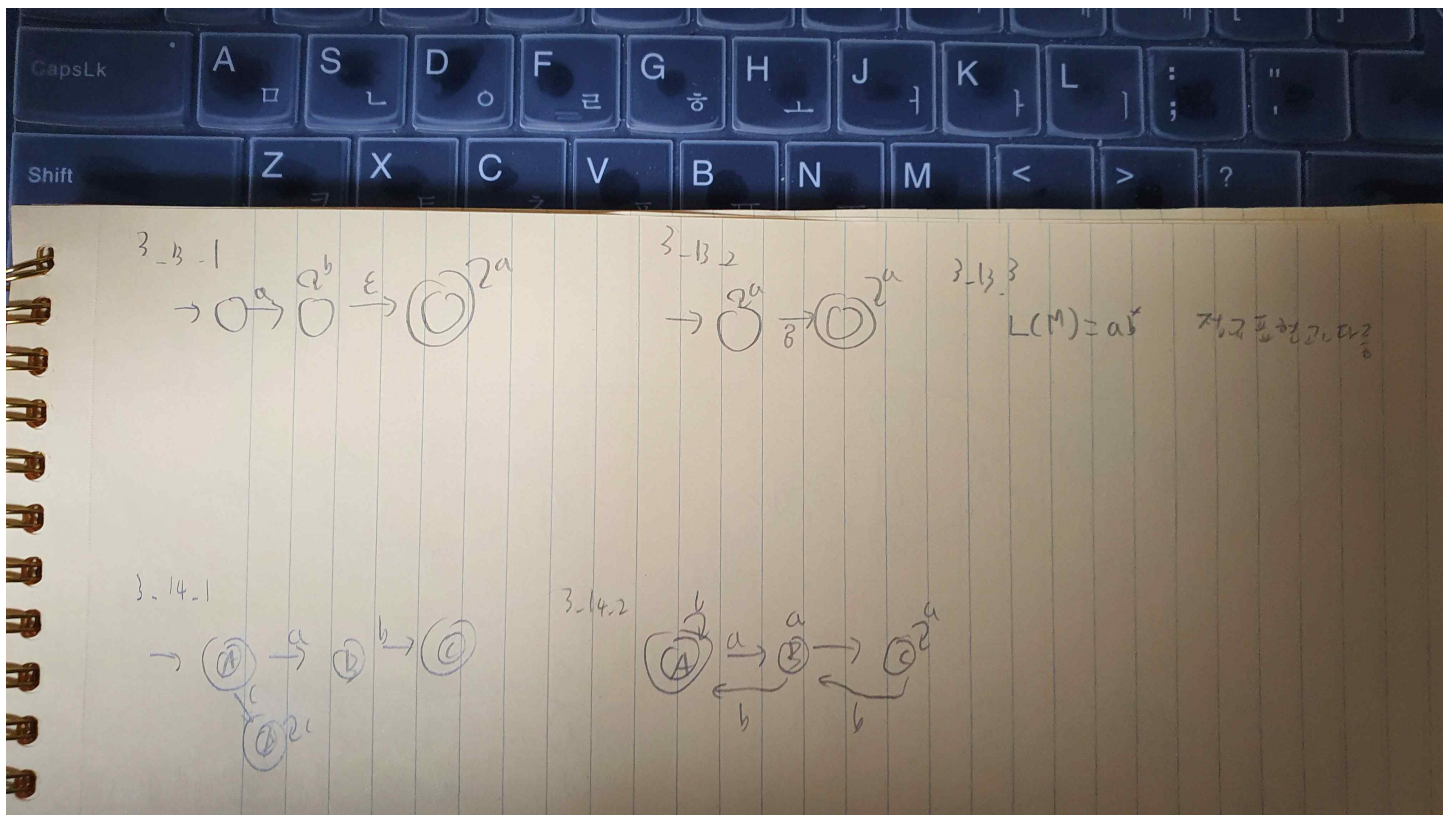 CapsLk A ㅁ S ㄴ D ㅇ F ㄹ G ㅎ H ㅗ J ㅓ K ㅏ L ㅣ : ; " '
Shift Z X C V B N M < > ?
3_13_1
a b ε a
3_13_2
a b a
3_13_3
L(M) = ab*
3_14_1
A a b b C
c D c
3_14_2
b A a a B C a
b b